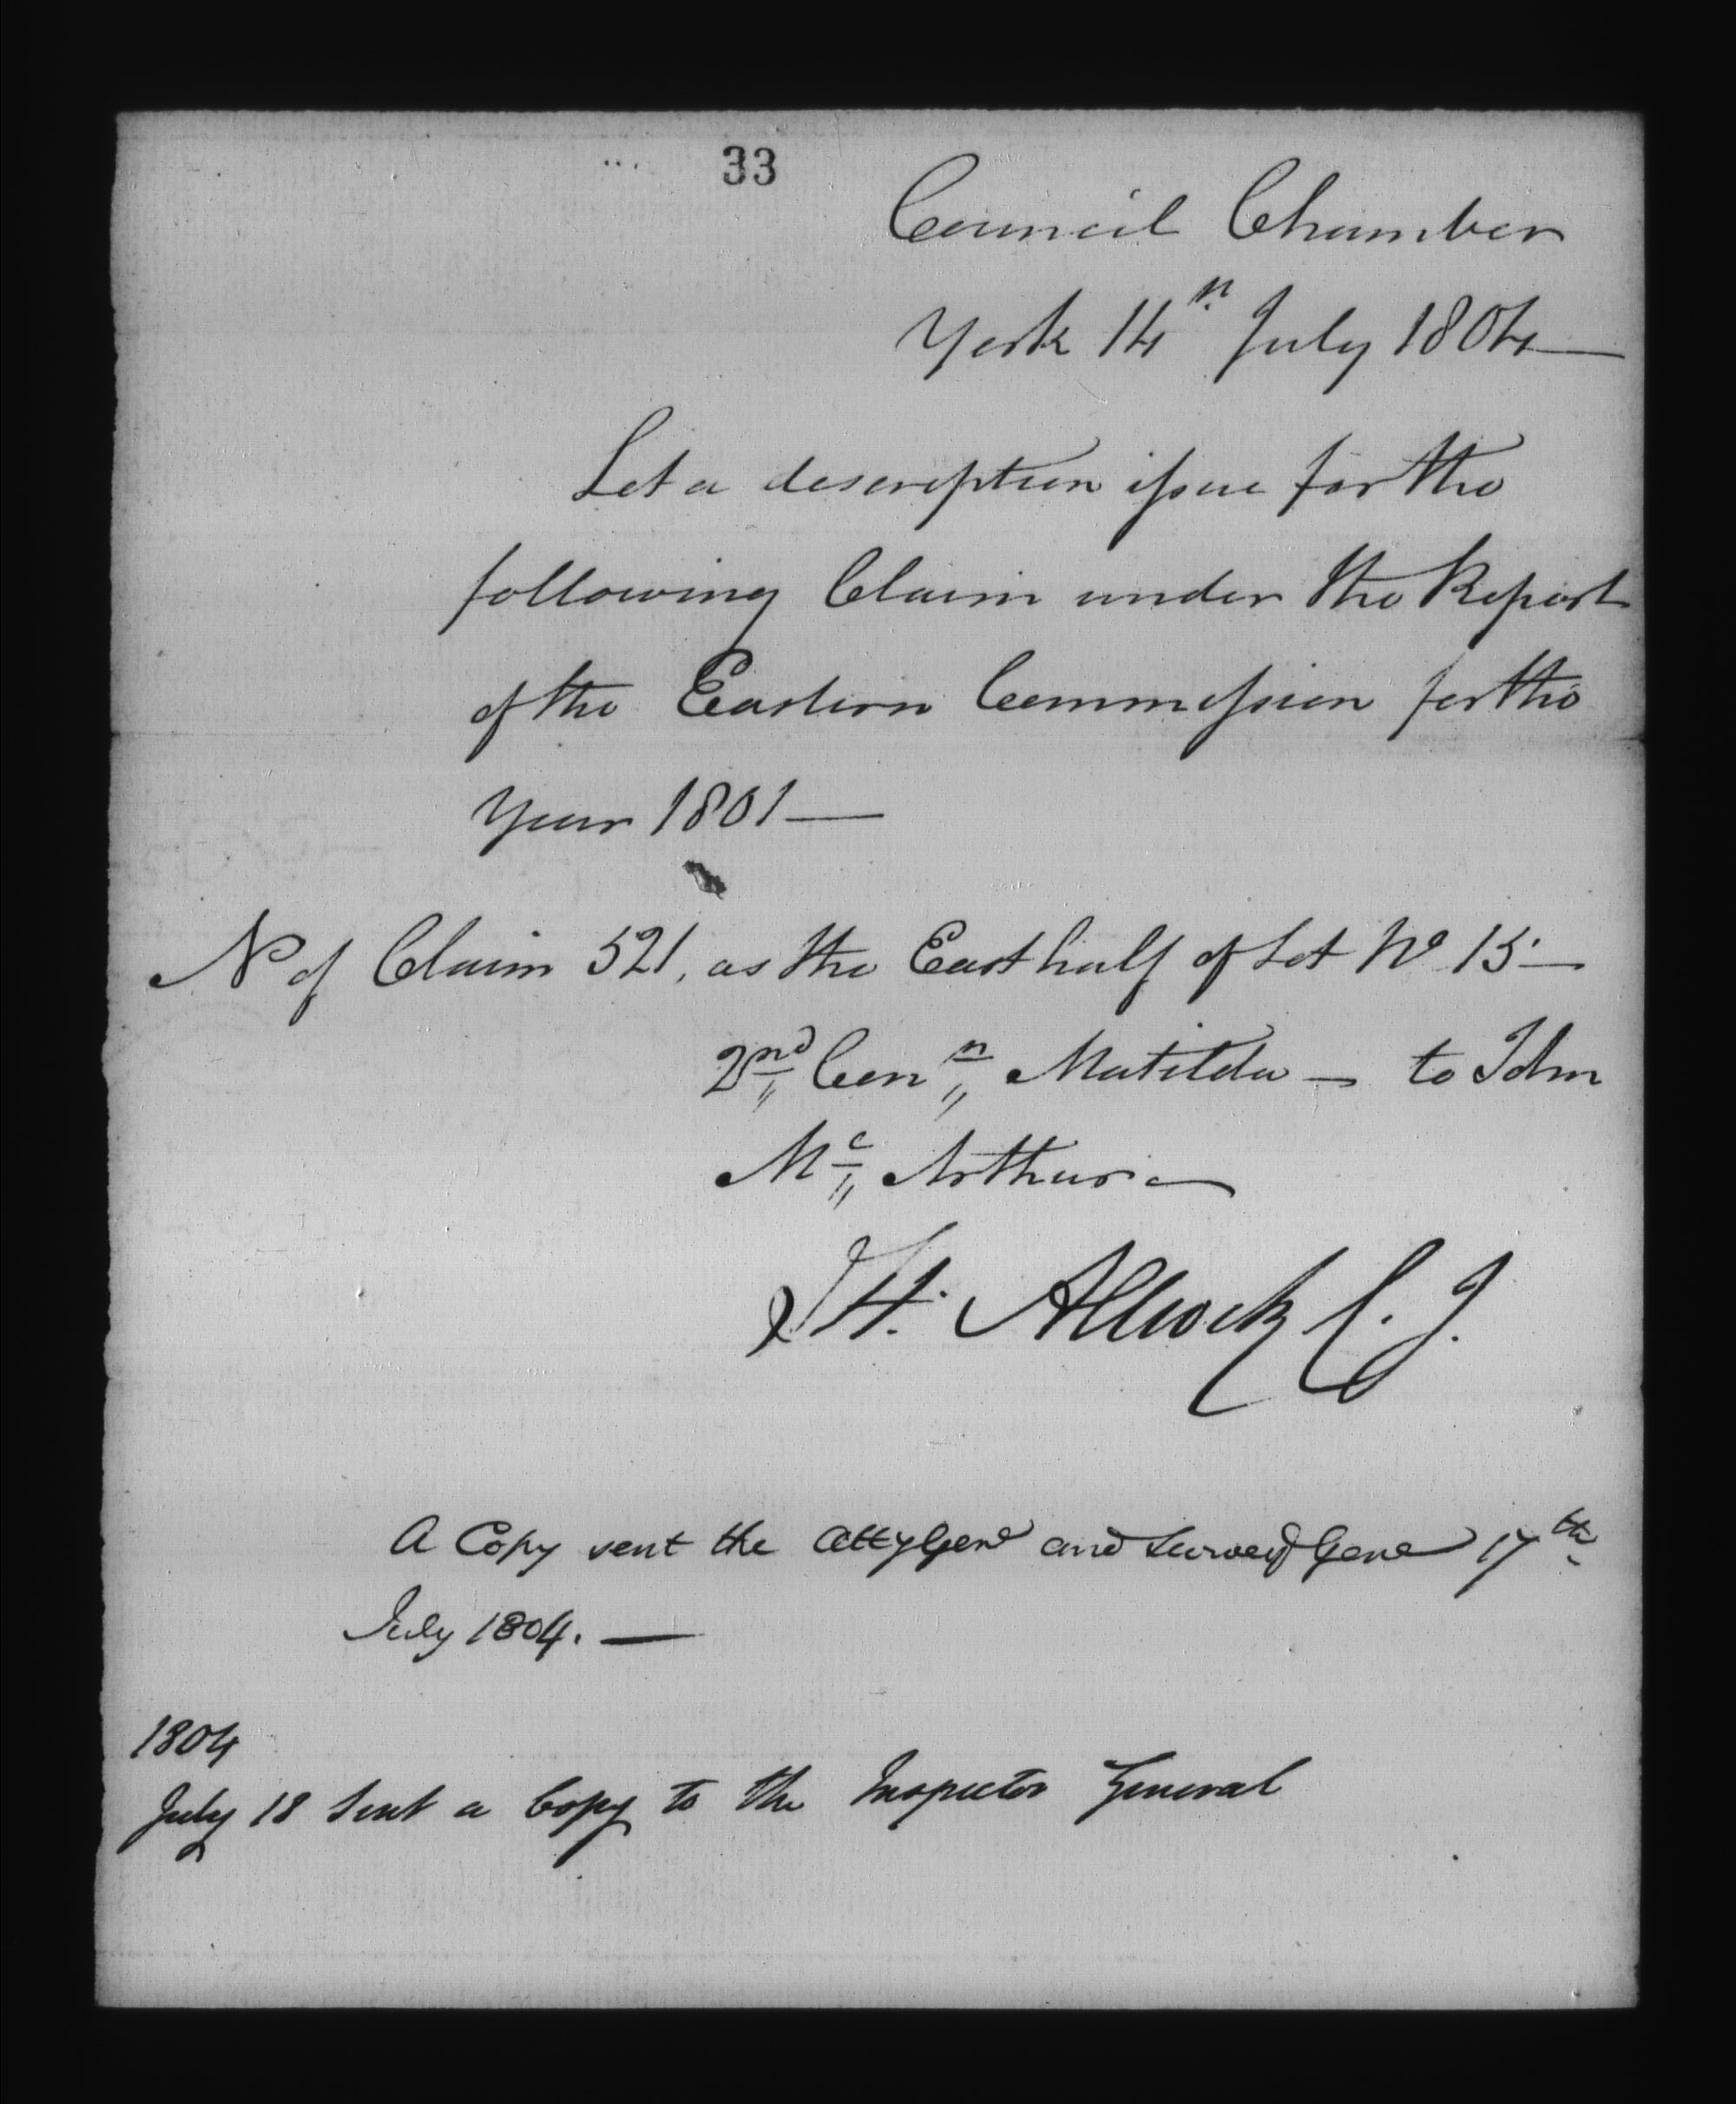 33
Council Chamber
York 14th July 1804
Let a description issue for the
following Claim under the Report
of the Eastern Commission for the
Year 1801 —
No of Claim 521, as the East half of Lot No 15 —
2nd Conn Matilda — to John
Mc Arthur —
H. Allcock C. J.
A Copy sent the Atty Genl and Survey Genl 17th
July 1804. —
1804
July 18 Sent a Copy to the Inspector General